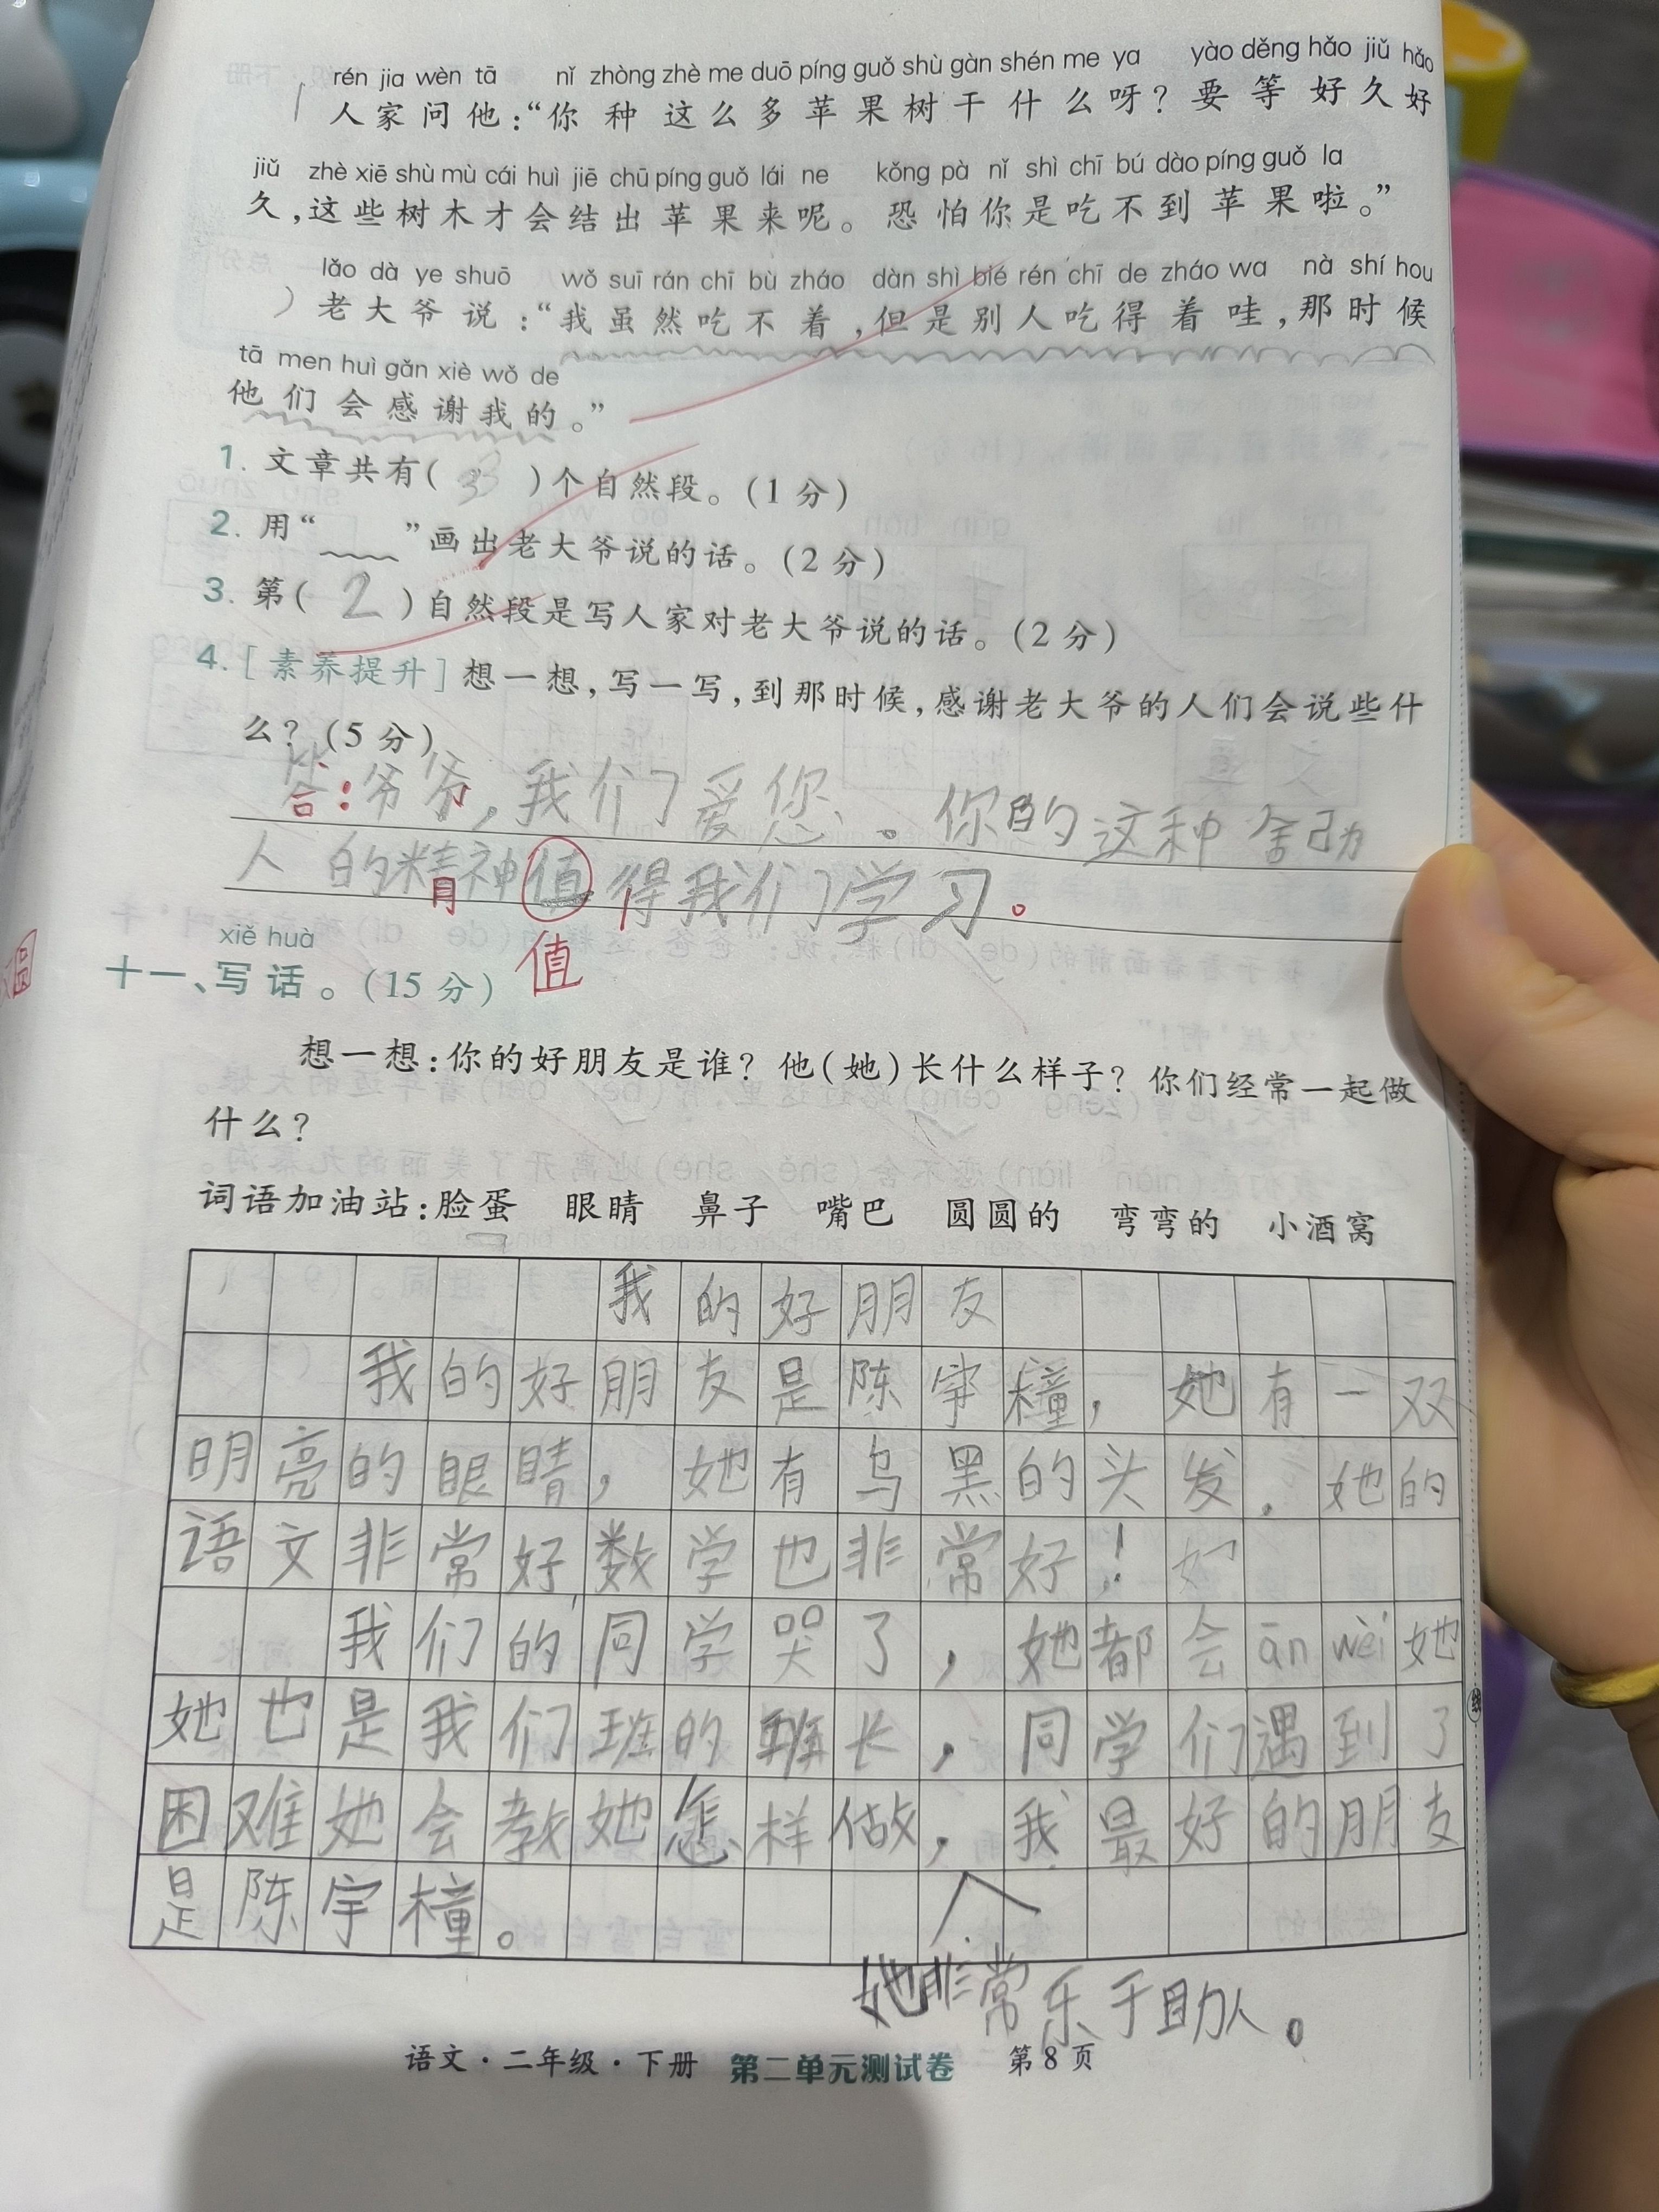 rén jia wèn tā nǐ zhòng zhè me duō píng guǒ shù gàn shén me ya yào děng hǎo jiǔ hǎo
人家问他:“你种这么多苹果树干什么呀?要等好久好
jiǔ zhè xiē shù mù cái huì jiē chū píng guǒ lái ne kǒng pà nǐ shì chī bú dào píng guǒ la
久,这些树木才会结出苹果来呢。恐怕你是吃不到苹果啦。”
lǎo dà ye shuō wǒ suī rán chī bù zháo dàn shì bié rén chī de zháo wa nà shí hou
老大爷说:“我虽然吃不着,但是别人吃得着哇,那时候
tā men huì gǎn xiè wǒ de
他们会感谢我的。”
1. 文章共有(3)个自然段。(1分)
2. 用“﹏﹏”画出老大爷说的话。(2分)
3. 第(2)自然段是写人家对老大爷说的话。(2分)
4. [素养提升]想一想,写一写,到那时候,感谢老大爷的人们会说些什
么?(5分)
答:爷爷,我们爱您。你的这种舍己助
人的精神值得我们学习。
值
xiě huà
十一、写话。(15分)
想一想:你的好朋友是谁?他(她)长什么样子?你们经常一起做
什么?
词语加油站:脸蛋 眼睛 鼻子 嘴巴 圆圆的 弯弯的 小酒窝
我的好朋友
我的好朋友是陈宇橦,她有一双
明亮的眼睛,她有乌黑的头发。她的
语文非常好,数学也非常好!
我们的同学哭了,她都会ān wèi她
她也是我们班的班长,同学们遇到了
困难她会教她怎样做,我最好的朋友
是陈宇橦。
她非常乐于助人。
语文·二年级·下册 第二单元测试卷 第8页